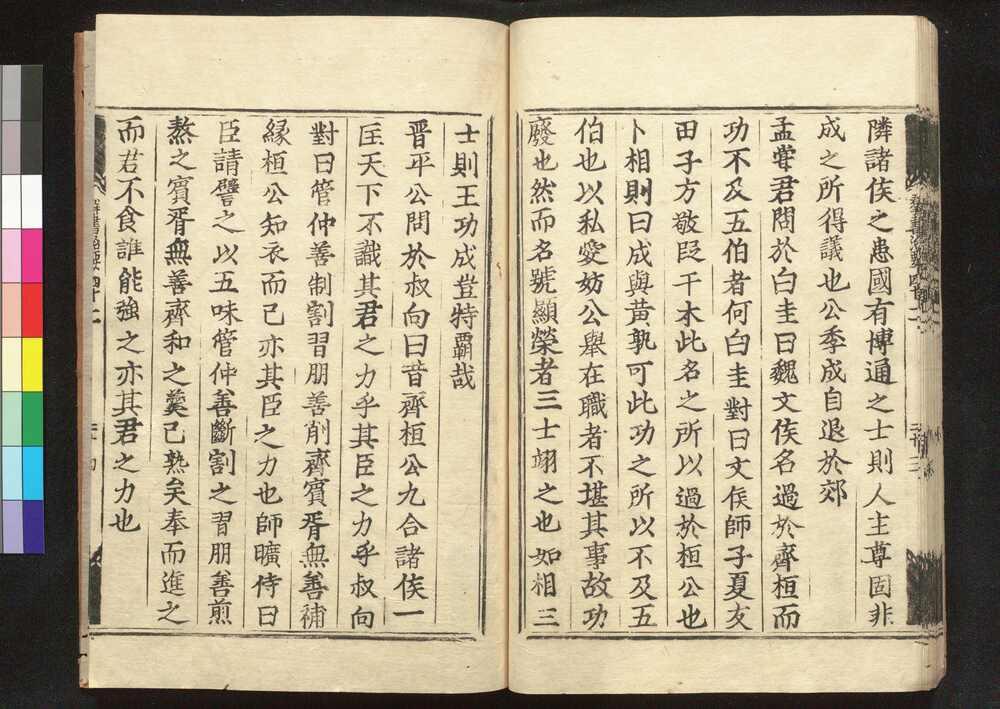 隣諸侯之患國有博通之士則人主尊固非
成之所得議也公季成自退於郊
孟甞君問於白圭曰魏文侯名過於齊桓而
功不及五伯者何白圭對曰文侯師子夏友
田子方敬段干木此名之所以過於桓公也
卜相則曰成與黄孰可此功之所以不及五
伯也以私愛妨公舉在職者不堪其事故功
廢也然而名號顯榮者三士翊之也如相三
士則王功成豈特覇哉
晉平公問於叔向曰昔齊桓公九合諸侯一
匡天下不識其君之力乎其臣之力乎叔向
對曰管仲善制割習朋善削齊賓胥無善補
縁桓公知衣而已亦其臣之力也師曠侍曰
臣請譬之以五味管仲善斷割之習朋善煎
熬之賓胥無善齊和之羹已熟矣奉而進之
而君不食誰能強之亦其君之力也
群書治要四十二